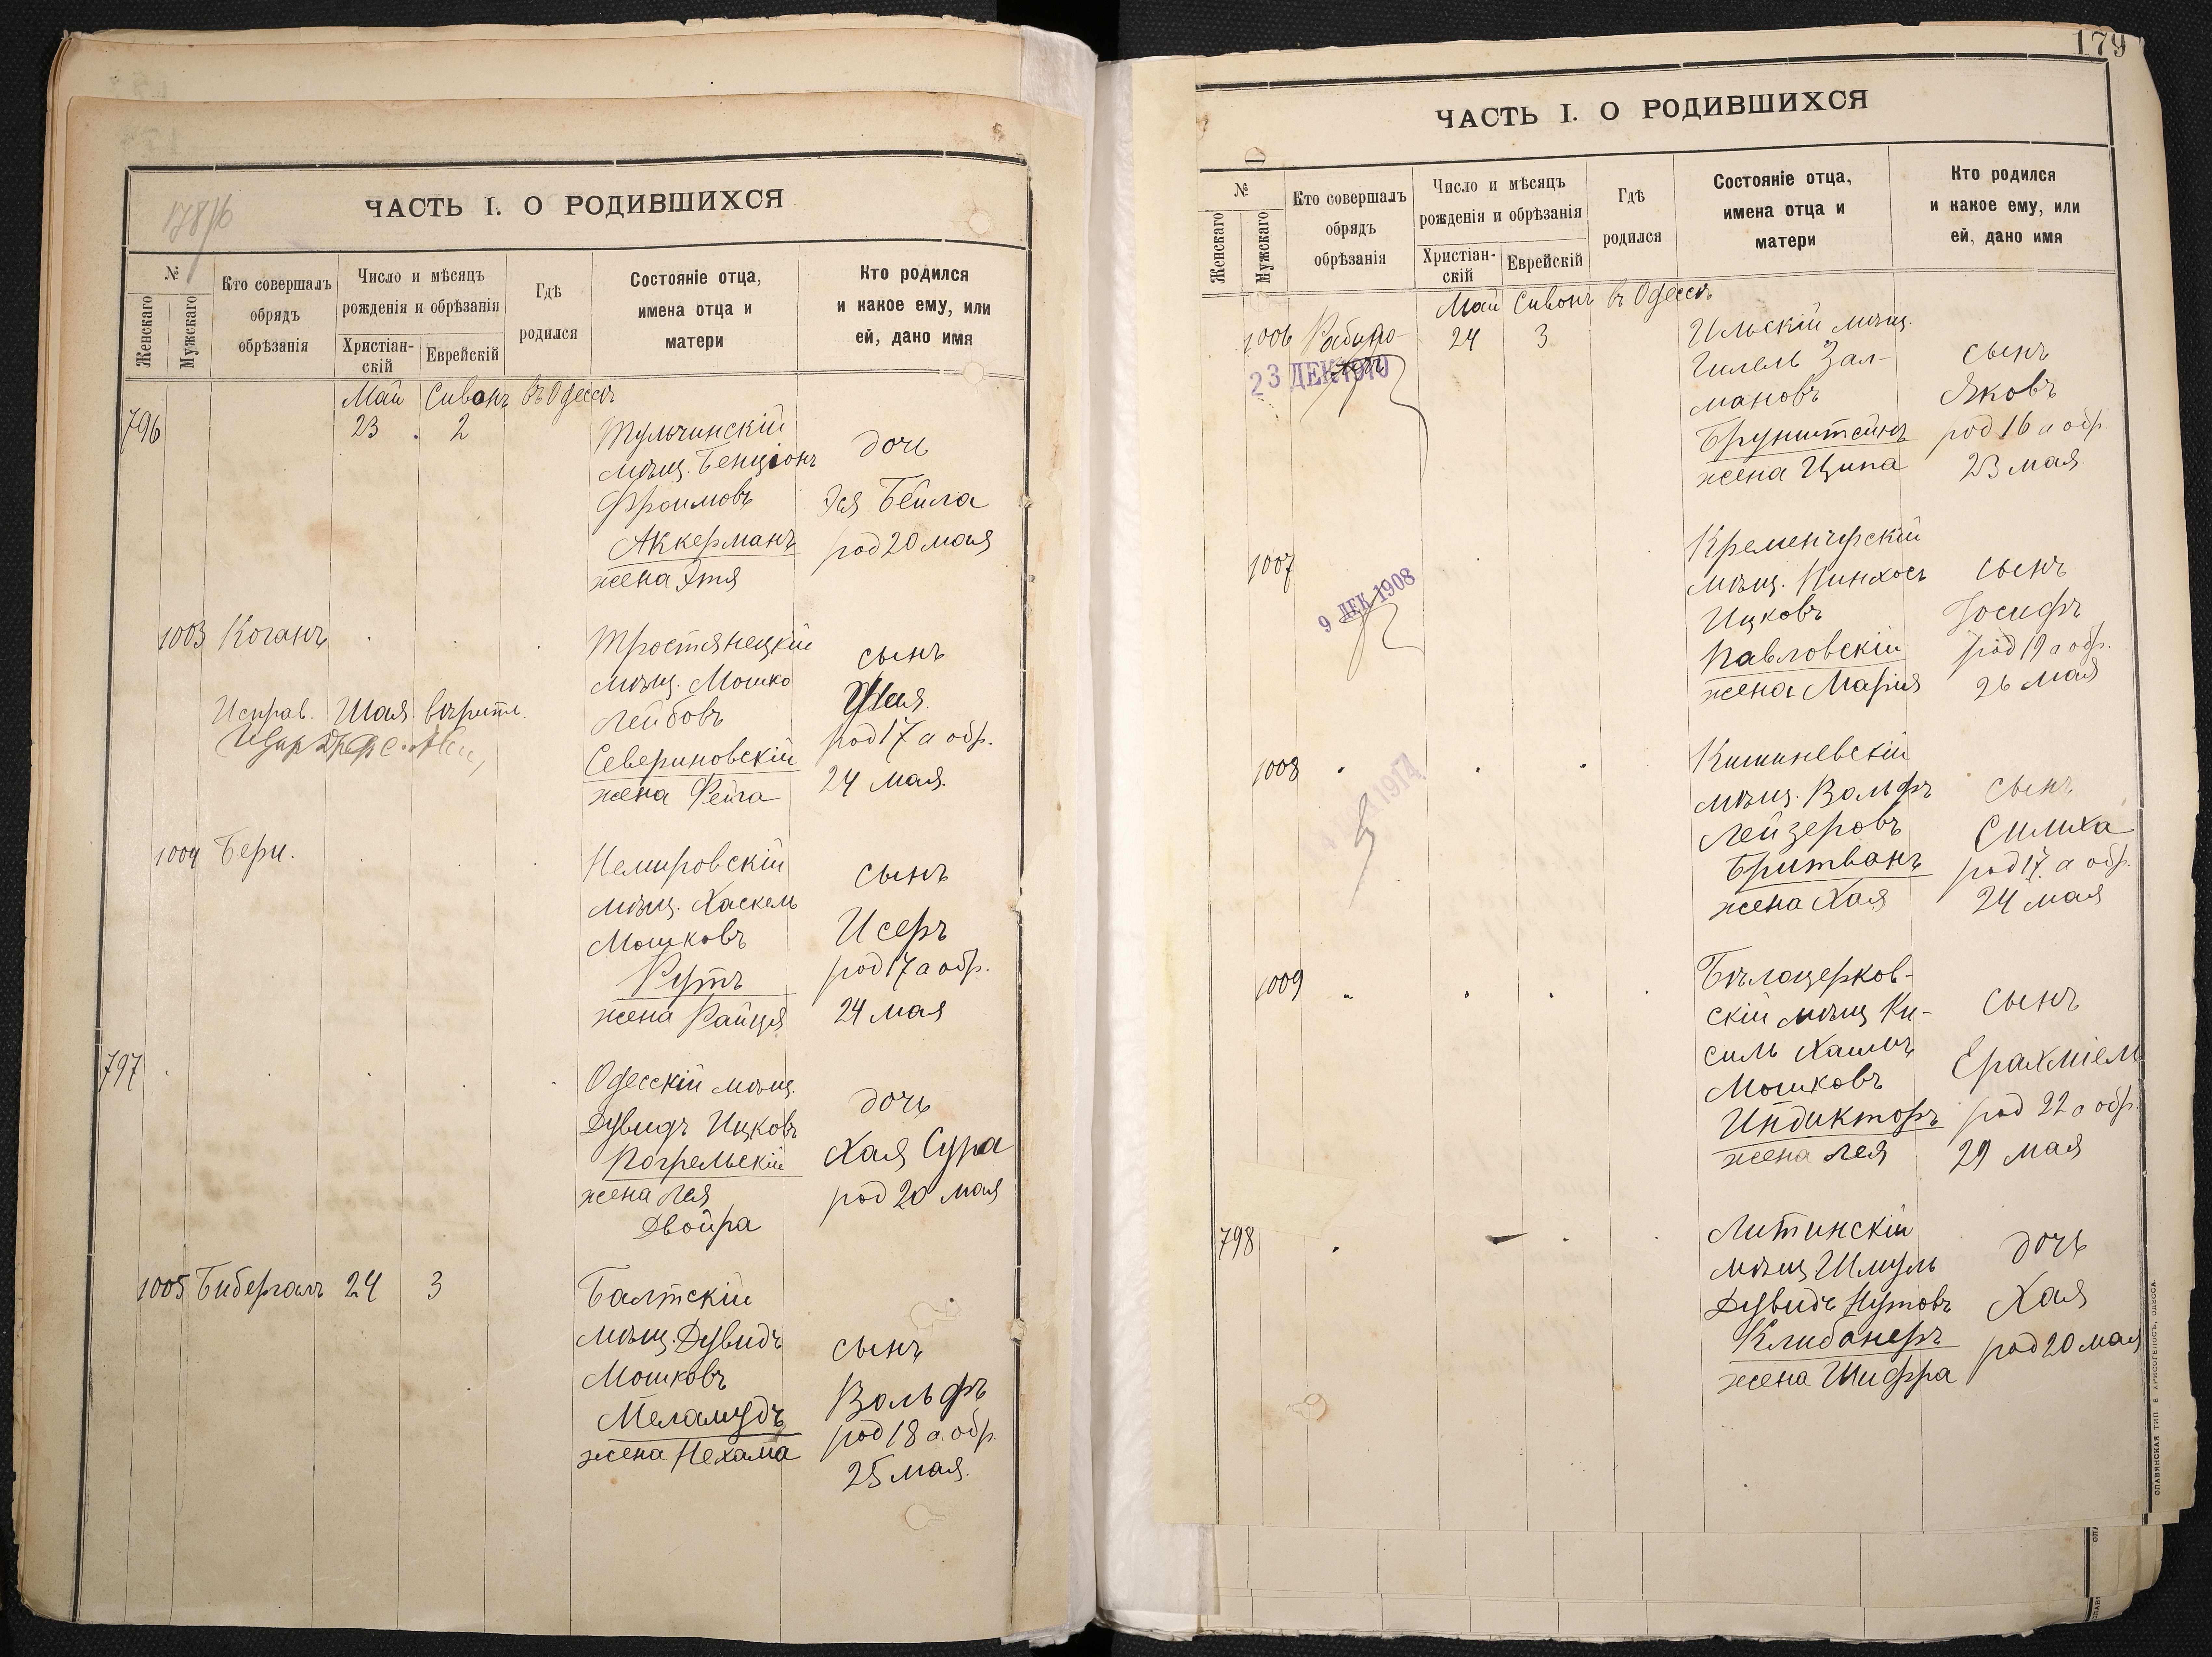 178/б
ЧАСТЬ I. О РОДИВШИХСЯ
№
Женскаго
Мужскаго
Кто совершалъ
обрядъ
обрѣзанія
Число и мѣсяцъ
рожденія и обрѣзанія
Христіан-
скій
Еврейскій
Гдѣ
родился
Состояніе отца,
имена отца и
матери
Кто родился
и какое ему, или
ей, дано имя
Май Сивонъ въ Одессѣ
796 23 2
Тульчинскій
мѣщ. Бенціонъ
Фроимовъ
Аккерманъ
жена Этя
дочь
Эся Бейла
род 20 мая
1003 Коганъ
Тростянецкій
мѣщ. Мошко
Лейбовъ
Севериновскій
жена Фейга
сынъ
Шая.
род 17 а обр.
24 мая.
Исправ. Шая. вѣрить.
1004 Бери.
Немировскій
мѣщ. Хаскель
Мошковъ
Рутъ
жена Райця
сынъ
Исеръ
род 17 а обр.
24 мая
797
Одесскій мѣщ.
Дувидъ Ицковъ
Погрельскій
жена Лея
Двойра
дочь
Хая Сура
род 20 мая
1005 Бибергалъ 24 3
Балтскій
мѣщ. Дувидъ
Мошковъ
Меламудъ
жена Нехама
сынъ
Вольфъ
род 18 а обр.
25 мая.
179
ЧАСТЬ I. О РОДИВШИХСЯ
№
Женскаго
Мужскаго
Кто совершалъ
обрядъ
обрѣзанія
Число и мѣсяцъ
рожденія и обрѣзанія
Христіан-
скій
Еврейскій
Гдѣ
родился
Состояніе отца,
имена отца и
матери
Кто родился
и какое ему, или
ей, дано имя
Май Сивонъ въ Одессѣ
1006 Рабино- 24 3
23 ДЕК 1910
Ильскій мѣщ.
Гилель Зал-
мановъ
Брунштейнъ
жена Ципа
сынъ
Яковъ
род 16 а обр.
23 мая.
1007
9 ДЕК 1908
Кременчугскій
мѣщ. Пинхосъ
Ицковъ
Павловскій
жена Марія
сынъ
Іосифъ
род 19 а обр.
26 мая
1008
1914
Кишиневскій
мѣщ. Вольфъ
Лейзеровъ
Бритванъ
жена Хая
сынъ
Симха
род 17. а обр.
24 мая
1009
Бѣлоцерков-
скій мѣщ Ки-
силь Хаимъ
Мошковъ
Индикторъ
жена Лея
сынъ
Ерахміель
род 22 а обр.
29 мая
798
Литинскій
мѣщ Шмуль
Дувидъ Нутовъ
Клибанеръ
жена Шифра
дочь
Хая
род 20 мая
СЛАВЯНСКАЯ ТИП. Е. ХРИСОГЕЛОСЪ, ОДЕССА